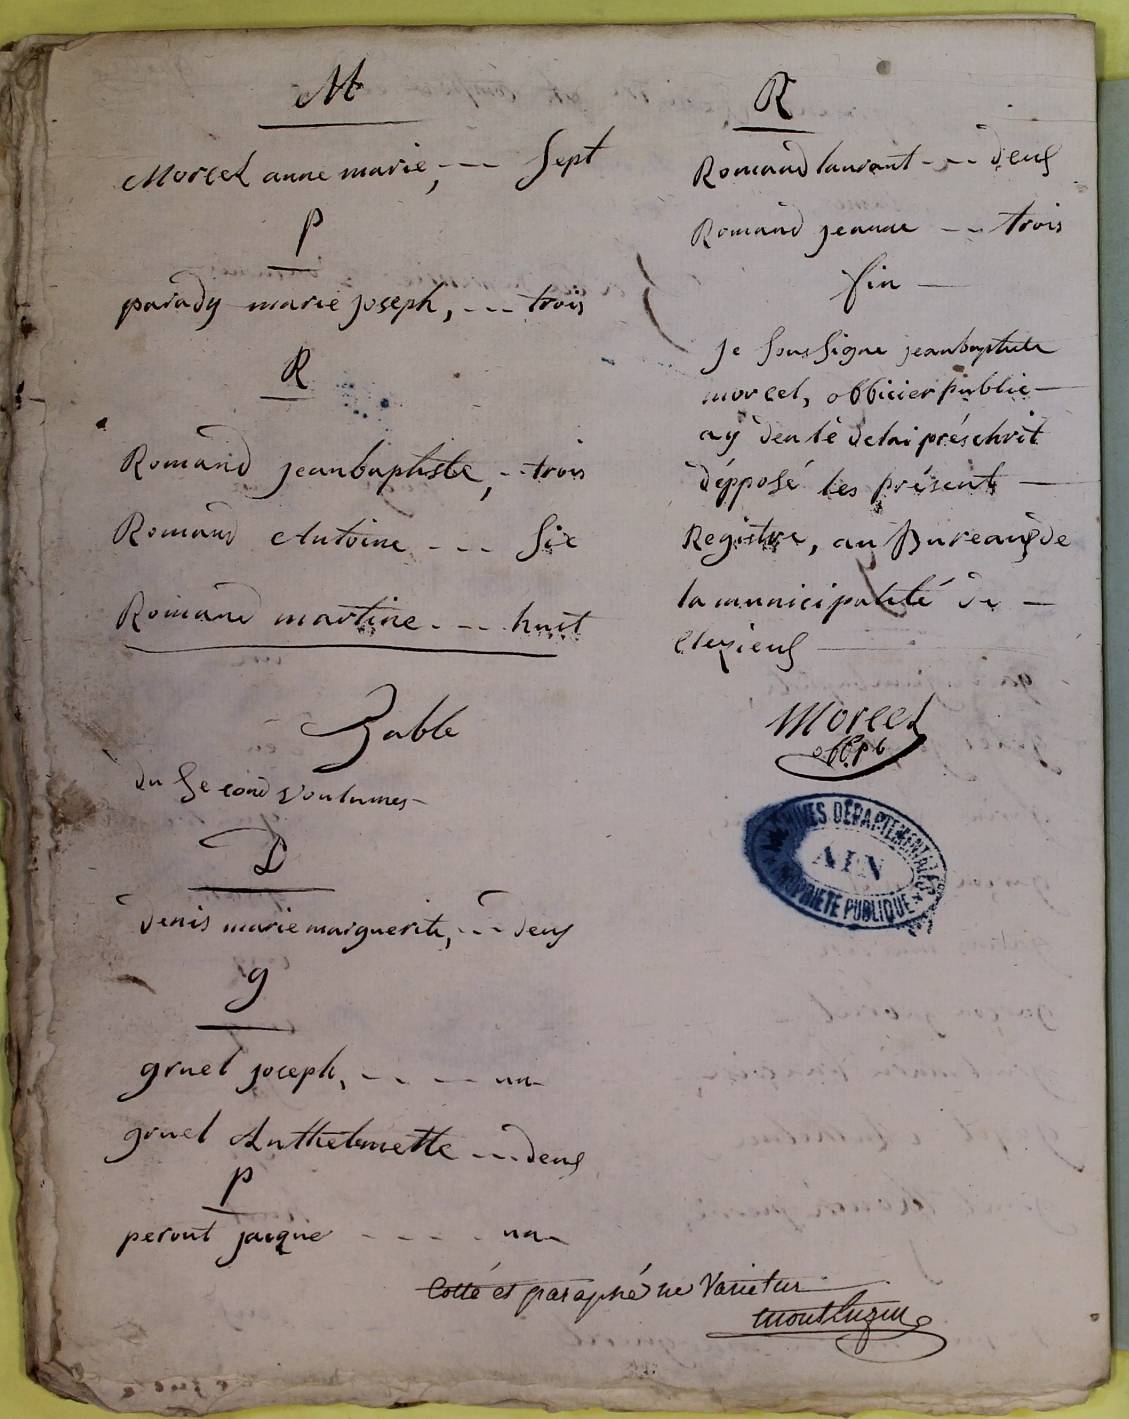 M
Morcel anne marie, --- Sept
P
parady marie joseph, --- trois
R
Romand jeanbaptiste, -- trois
Romand Antoine --- Six
Romand martine. --- huit
Table
du Second Voulumes -
D
denis marie marguerite, --- deus
g
gruel joseph, - - - - un
gruel Anthelmette --- deus
P
peront jacque - - - - un
R
Romand laurant --- deus
Romand jeanne --- trois
fin -
Je Soussigne jeanbaptiste
morcel, officier public -
ay den le delai préschrit
dépposé les présent -
Registre, au Bureau de
la municipalité de -
Cleyzieus
Morcel
offpb
ARCHIVES DÉPARTEMENTALES
AIN
PROPRIÉTÉ PUBLIQUE
Cotté et paraphé ne Varietur
montluzin